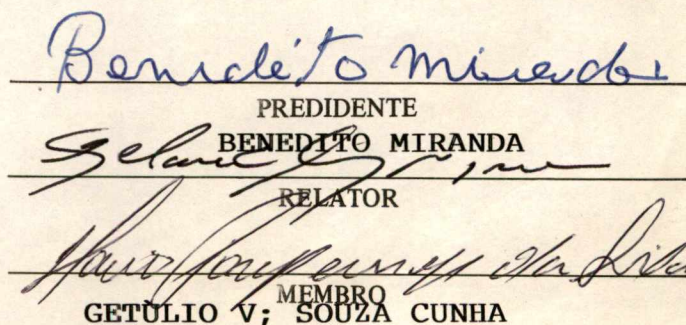 Benedito Miranda
PREDIDENTE
BENEDITO MIRANDA
RELATOR
da Silva
MEMBRO
GETÙLIO V; SOUZA CUNHA